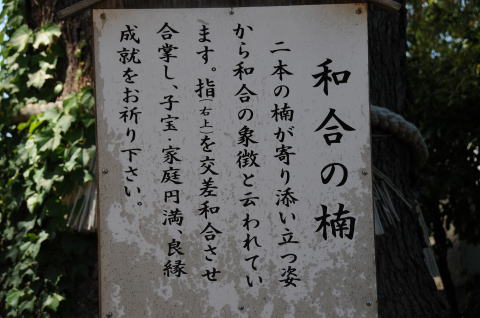 和合の楠
二本の楠が寄り添い立つ姿
から和合の象徴と云われてい
ます。指(右上)を交差和合させ
合掌し、子宝・家庭円満、良縁
成就をお祈り下さい。